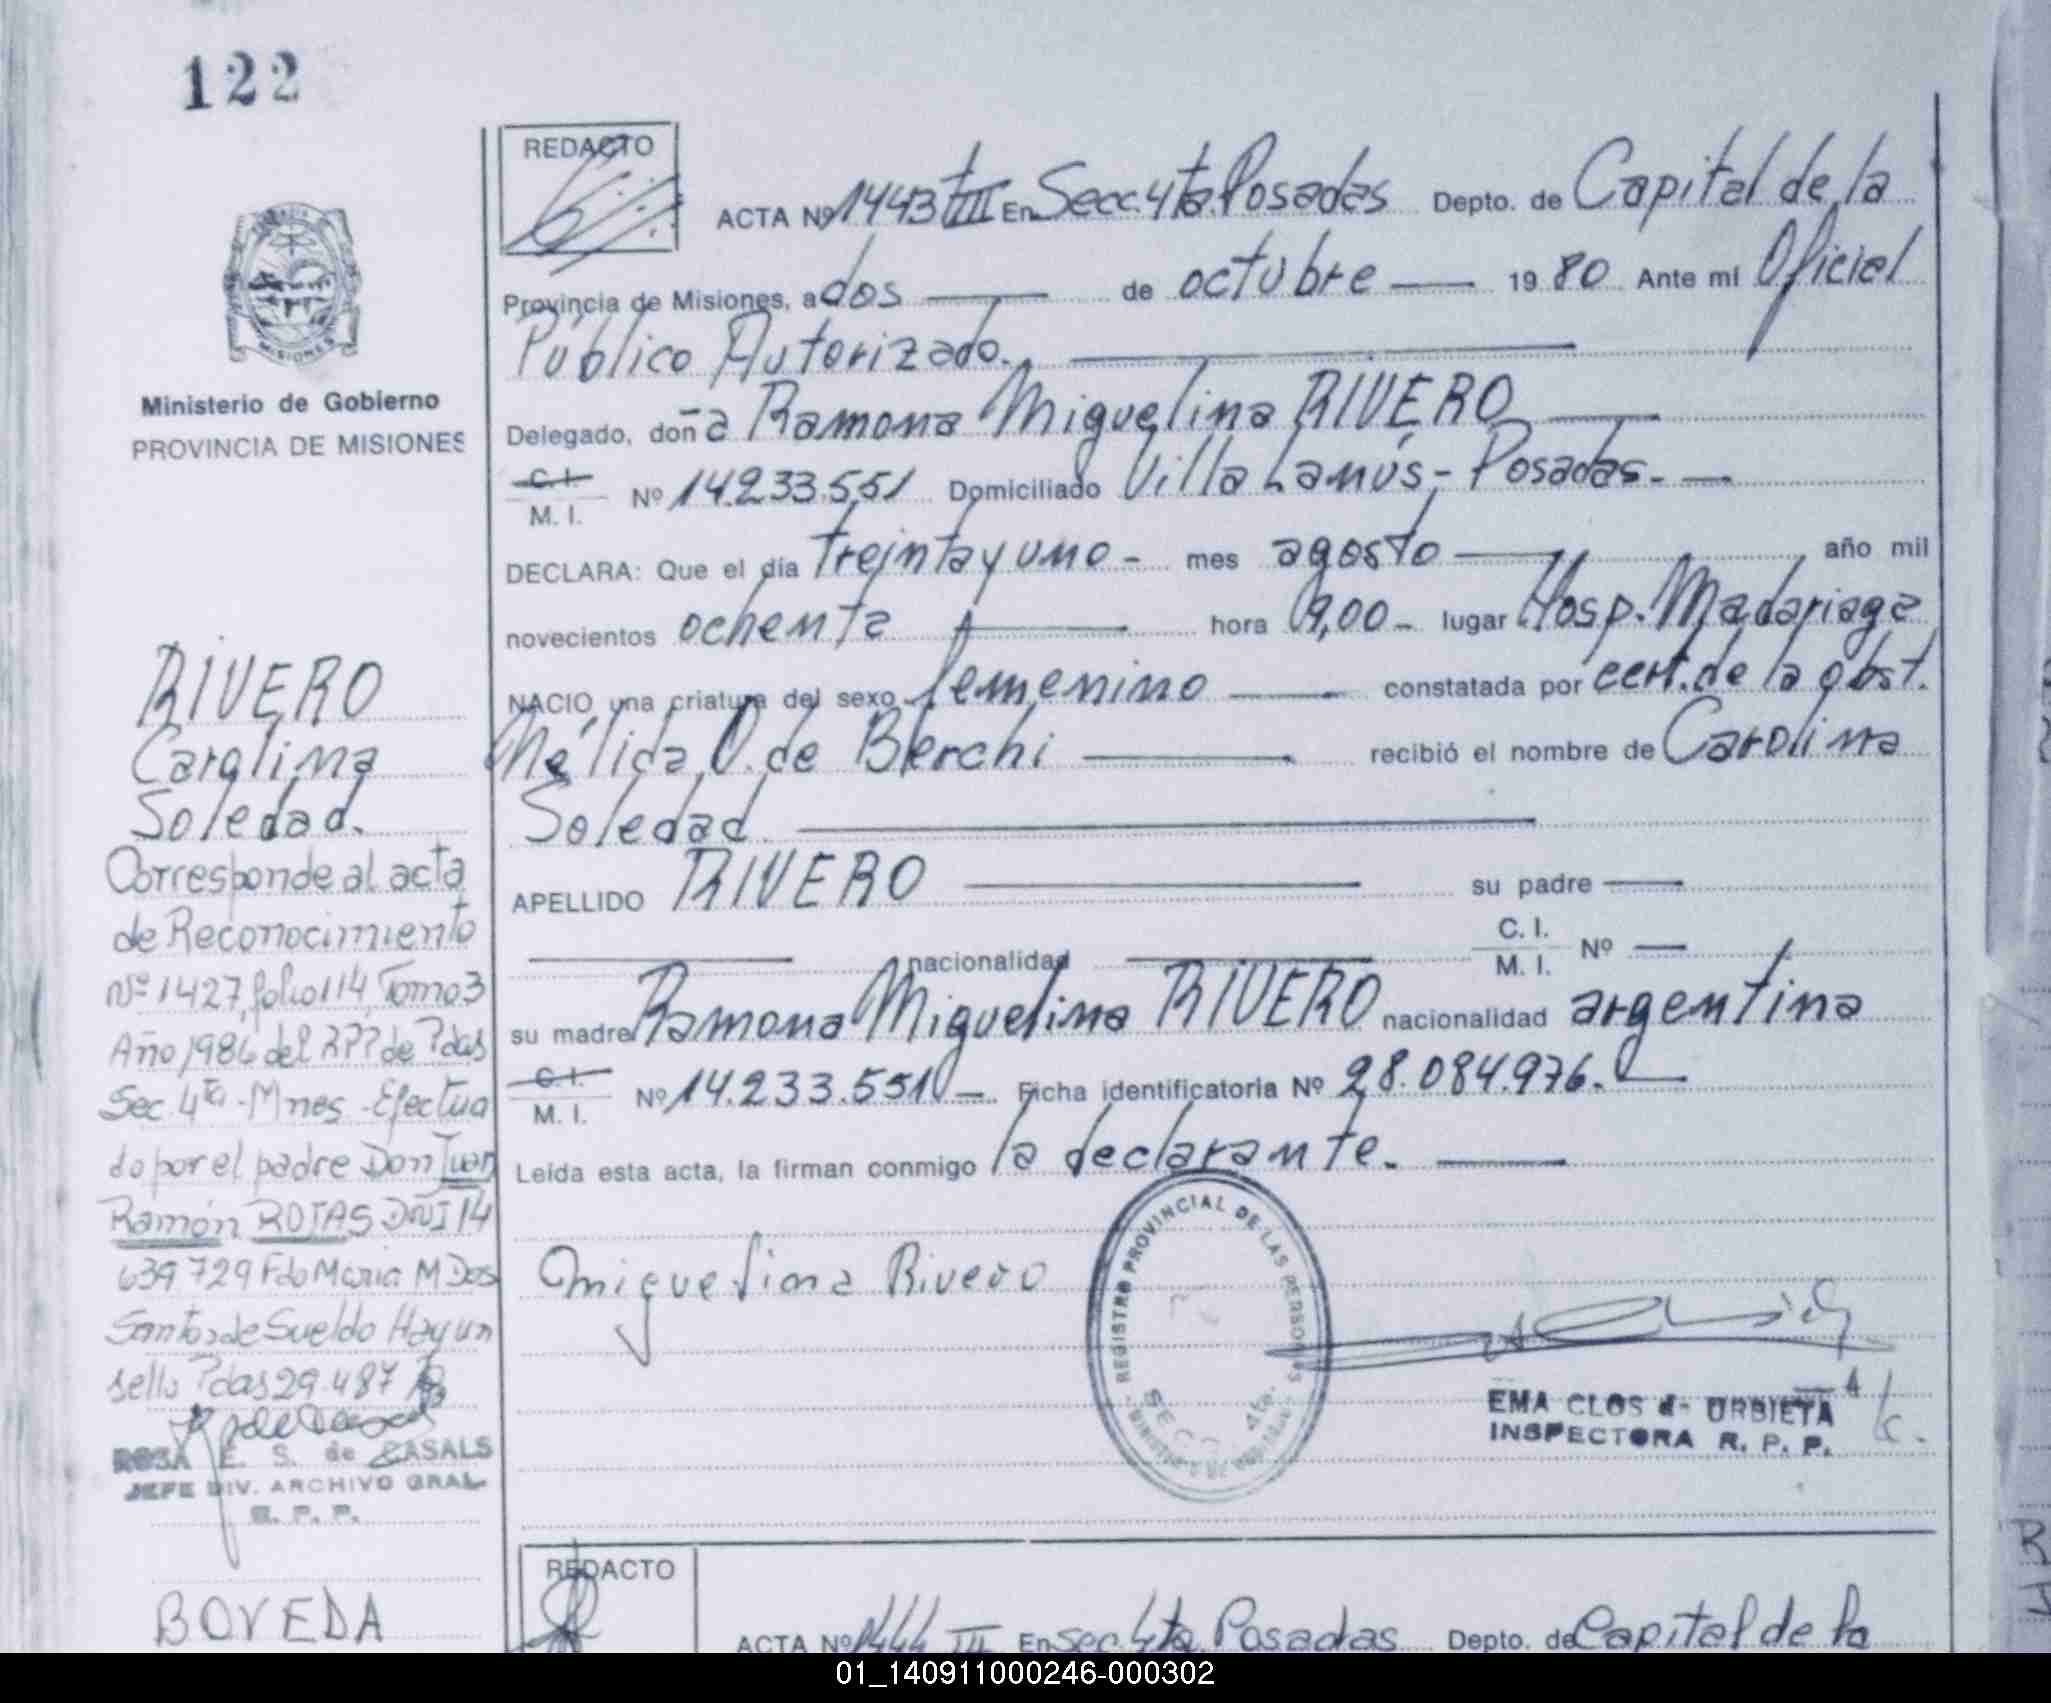 122
REDACTO
ACTA Nº 1443 tIII En Secc. 4ta. Posadas Depto. de Capital de la
Provincia de Misiones, a dos de octubre 19 80 Ante mi Oficial
Público Autorizado.
Delegado, doña Ramona Miguelina RIVERO
C. I.
M. I.
Nº 14.233.551 Domiciliado Villa Lanús,- Posadas.-
DECLARA: Que el día treinta y uno - mes agosto año mil
novecientos ochenta hora 9,00 - lugar Hosp. Madariaga
NACIO una criatura del sexo femenino constatada por cert. de la obst.
Nélida O. de Berchi recibió el nombre de Carolina
Soledad
APELLIDO RIVERO su padre
nacionalidad C. I.
M. I.
Nº
su madre Ramona Miguelina RIVERO nacionalidad argentina
C. I.
M. I.
Nº 14.233.551 - Ficha identificatoria Nº 28.084.976.
Leída esta acta, la firman conmigo la declarante.
Miguelina Rivero
REGISTRO PROVINCIAL DE LAS PERSONAS
SECC 4ta.
EMA CLOS de URBIETA
INSPECTORA R. P. P.
MISIONES
Ministerio de Gobierno
PROVINCIA DE MISIONES
RIVERO
Carolina
Soledad.
Corresponde al acta
de Reconocimiento
Nº 1427, folio 114, Tomo 3
Año 1986 del RPP de Pdas
Sec. 4ta - Mnes - Efectua
do por el padre Don Juan
Ramón ROJAS DNI 14
639 729 Fdo Maria M Dos
Santos de Sueldo Hay un
sello Pdas 29.4.87
ROSA E. S. de CASALS
JEFE DIV. ARCHIVO GRAL
R. P. P.
REDACTO
ACTA Nº 1444 III En sec 4ta Posadas Depto. de Capital de la
BOVEDA
01_140911000246-000302